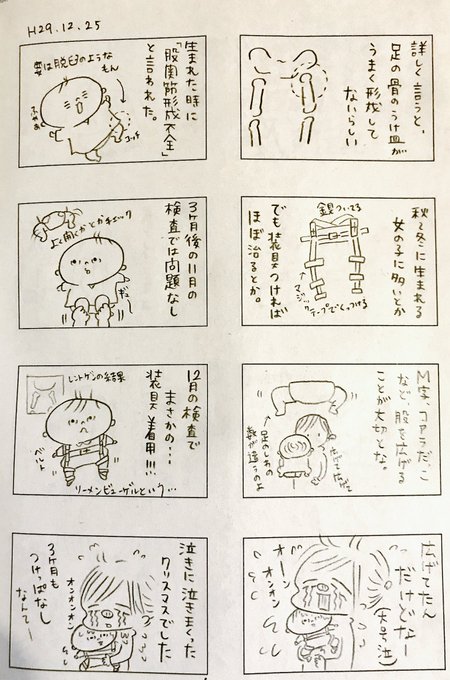 H29.12.25
生まれた時に
「股関節形成不全」
と言われた。
要は脱臼のような
もん
3ヶ月後の11月の
検査では問題なし
よく開くかとかチェック
12月の検査で
まさかの・・・
装具着用!!!
レントゲンの結果
リーメンビューゲルという…
泣きに泣きまくった
クリスマスでした
オンオンオン
3ヶ月も
つけっぱなし
なんてー
詳しく言うと、
足の骨のうけ皿が
うまく形成して
ないらしい
秋〜冬に生まれる
女の子に多いとか
でも装具つければ
ほぼ治るとか。
マジックテープでくっつける
M字、コアラだっこ
など、股を広げる
ことが大切とな。
←足のしわの
数が違うのよ
広げてたん
だけどなー
(大号泣)
オーン
オンオン